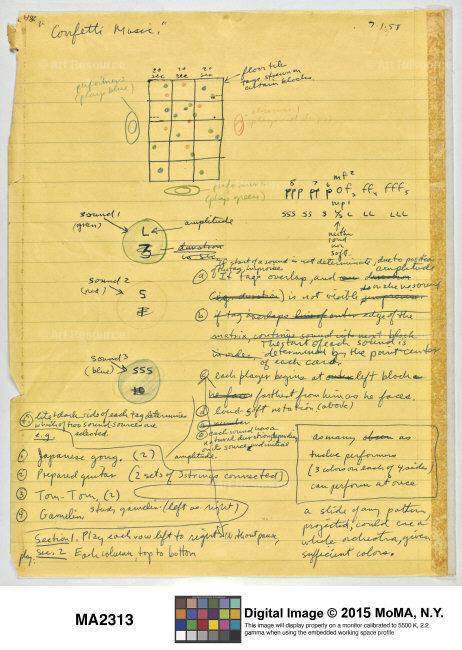 "Confetti Music."
7.1.58
20 sec 20 sec 20 sec
floor tile
tags strewn on
certain blocks.
performer 1
(play blue)
performer
(play green)
mf 2
ppp pp p of, ff, fff,
mp 1
SSS SS S L LL LLL
neither
loud
nor
soft.
sound 1
(green)
L
amplitude
3
duration
in sec.
sound 2
(red)
S
sound 3
(blue)
SSS
10
If start of a sound is not determinate, due to position
of the tag, improvise
(a) If tags overlap, and amplitude
(is, duration) is not visible
(b) if tag overlaps line of outer edge of the
matrix, continue sound into next block
The start of each sound is
in order determined by the point center
of each card.
(c) each player begins at left block
he faces farthest from him as he faces.
(d) loud-soft notation (above)
(e) each sound has a
natural duration depending
on its source and initial
amplitude.
(f) lite & dark side of each tag determine
which of two sound sources are
e.g. selected.
(1) Japanese gong. (2)
(2) Prepared guitar (2 sets of 3 strings connected)
(3) Tom-Tom, (2)
(4) Gamelin, study gamelin (left as right)
Section 1. Play each row left to right without pause,
play: sec. 2 Each column, top to bottom
as many as
twelve performers
(3 colors on each of 4 sides)
can perform at once
a slide of any pattern
projected, could cue a
whole orchestra, given
sufficient colors.
© Art Resource
MA2313
Digital Image © 2015 MoMA, N.Y.
This image will display properly on a monitor calibrated to 5500 K, 2.2
gamma when using the embedded working space profile